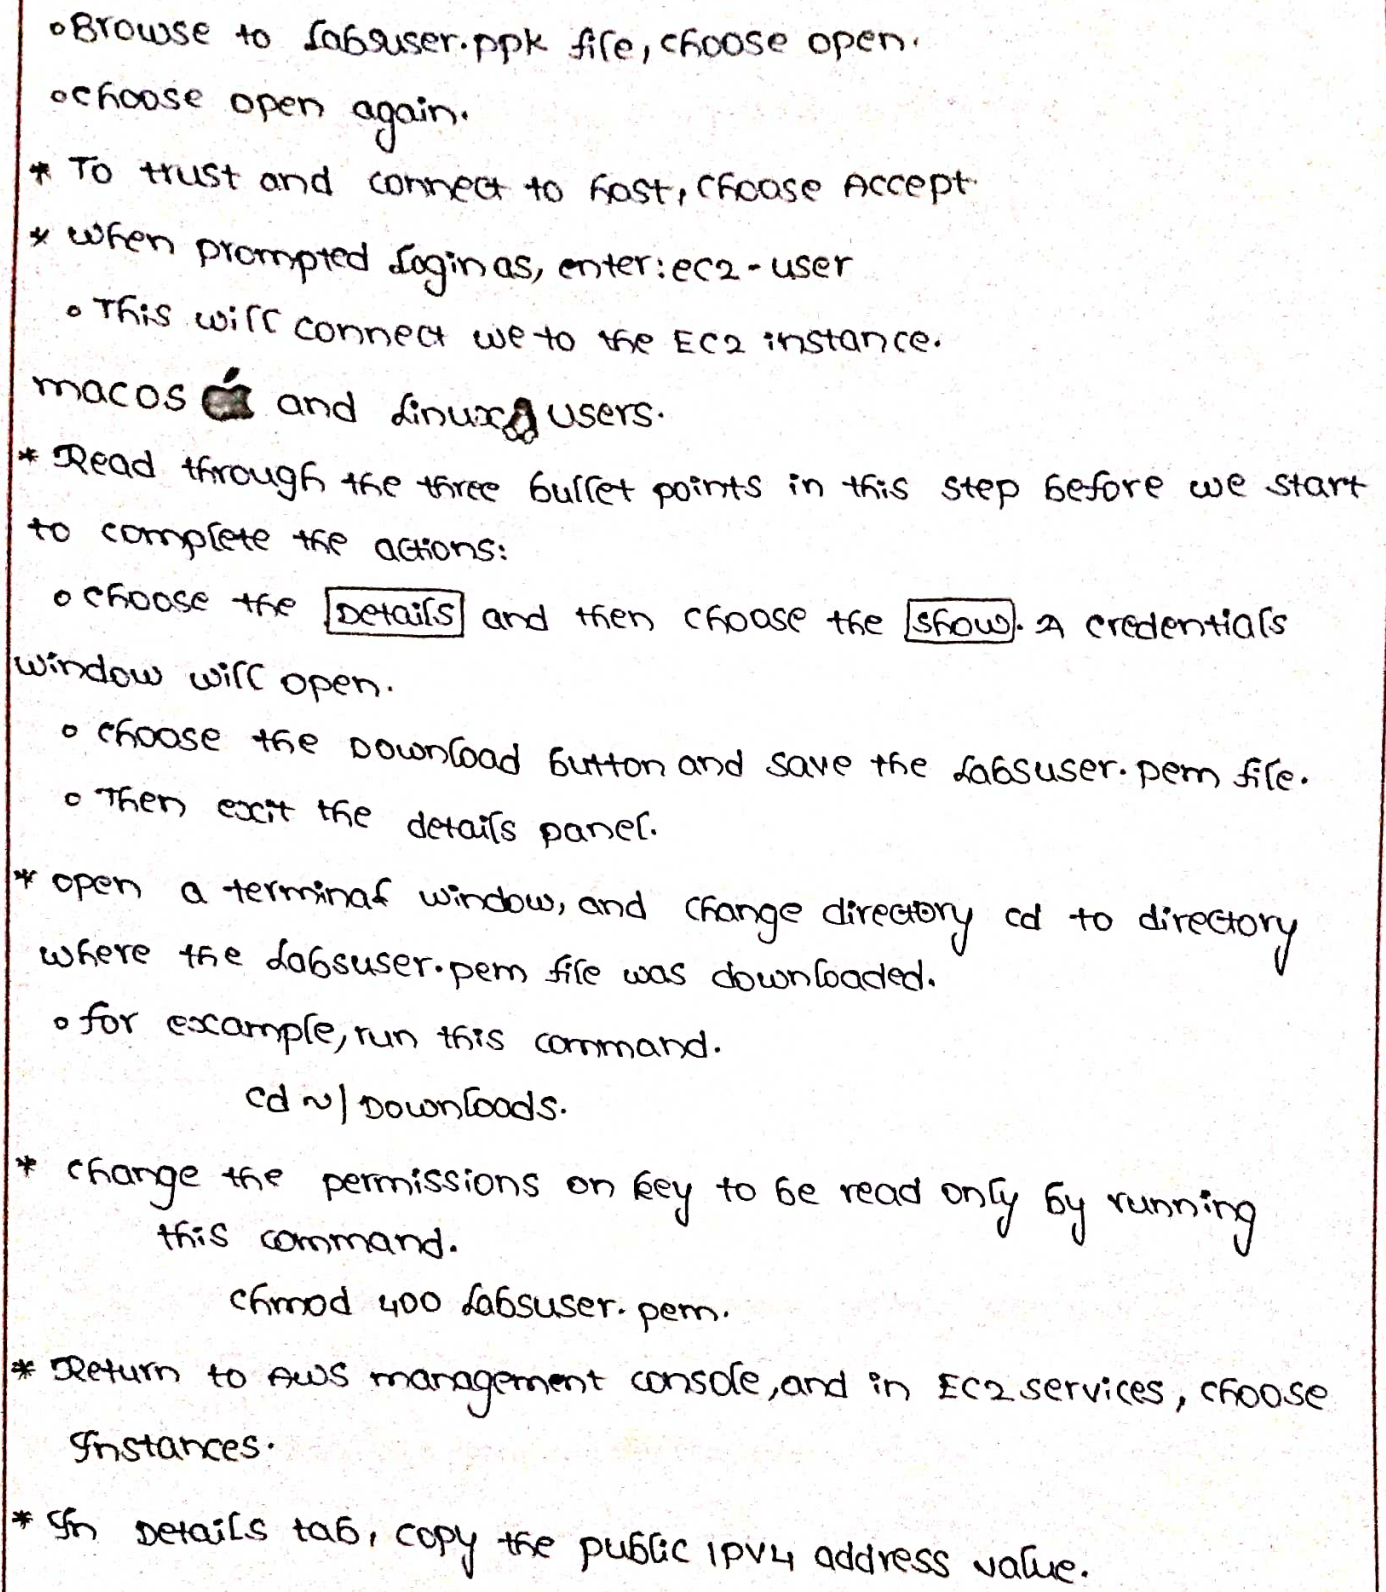 ∘Browse to labsuser.ppk file, choose open.
∘choose open again.
* To trust and connect to host, choose Accept.
* when prompted login as, enter: ec2-user
∘ This will connect we to the EC2 instance.
macos and Linux users.
* Read through the three bullet points in this step before we start
to complete the actions:
∘ choose the Details and then choose the Show. A credentials
window will open.
∘ choose the Download button and save the labsuser.pem file.
∘ Then exit the details panel.
* open a terminal window, and change directory cd to directory
where the labsuser.pem file was downloaded.
∘ for example, run this command.
cd ~| Downloads.
* change the permissions on key to be read only by running
this command.
chmod 400 labsuser.pem.
* Return to AWS management console, and in EC2 services, choose
Instances.
* In Details tab, copy the public IPV4 address value.